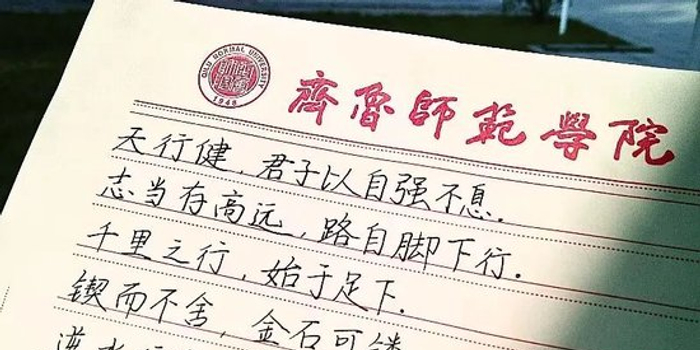 QILU NORMAL UNIVERSITY
1948
齊魯師範學院
天行健,君子以自强不息.
志当存高远,路自脚下行.
千里之行,始于足下.
锲而不舍,金石可镂